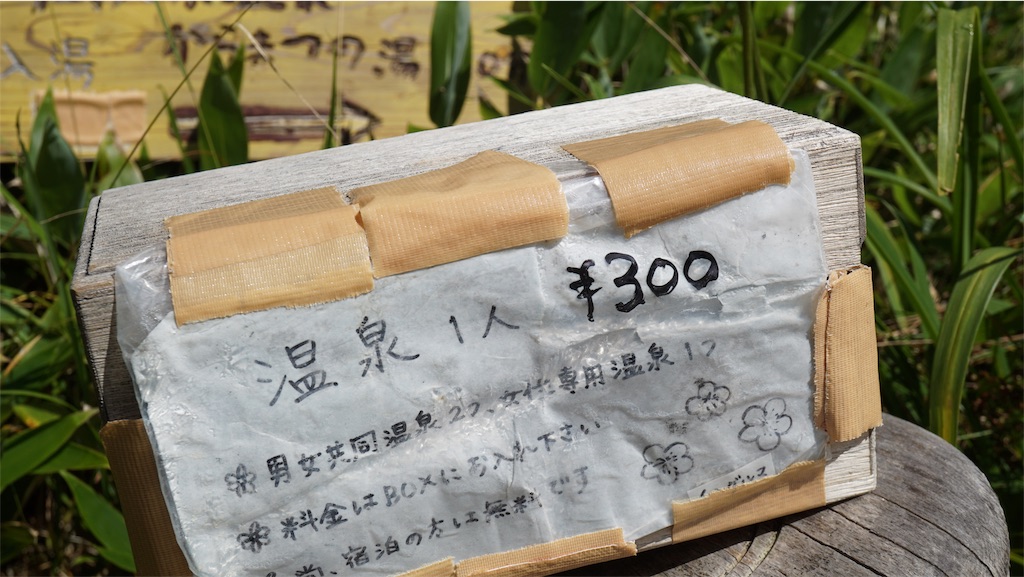 入湯
の湯
温泉 1人 ¥300
男女共同温泉2つ、女性専用温泉1つ
料金はBOXにお入れ下さい
尚、宿泊の方は無料です